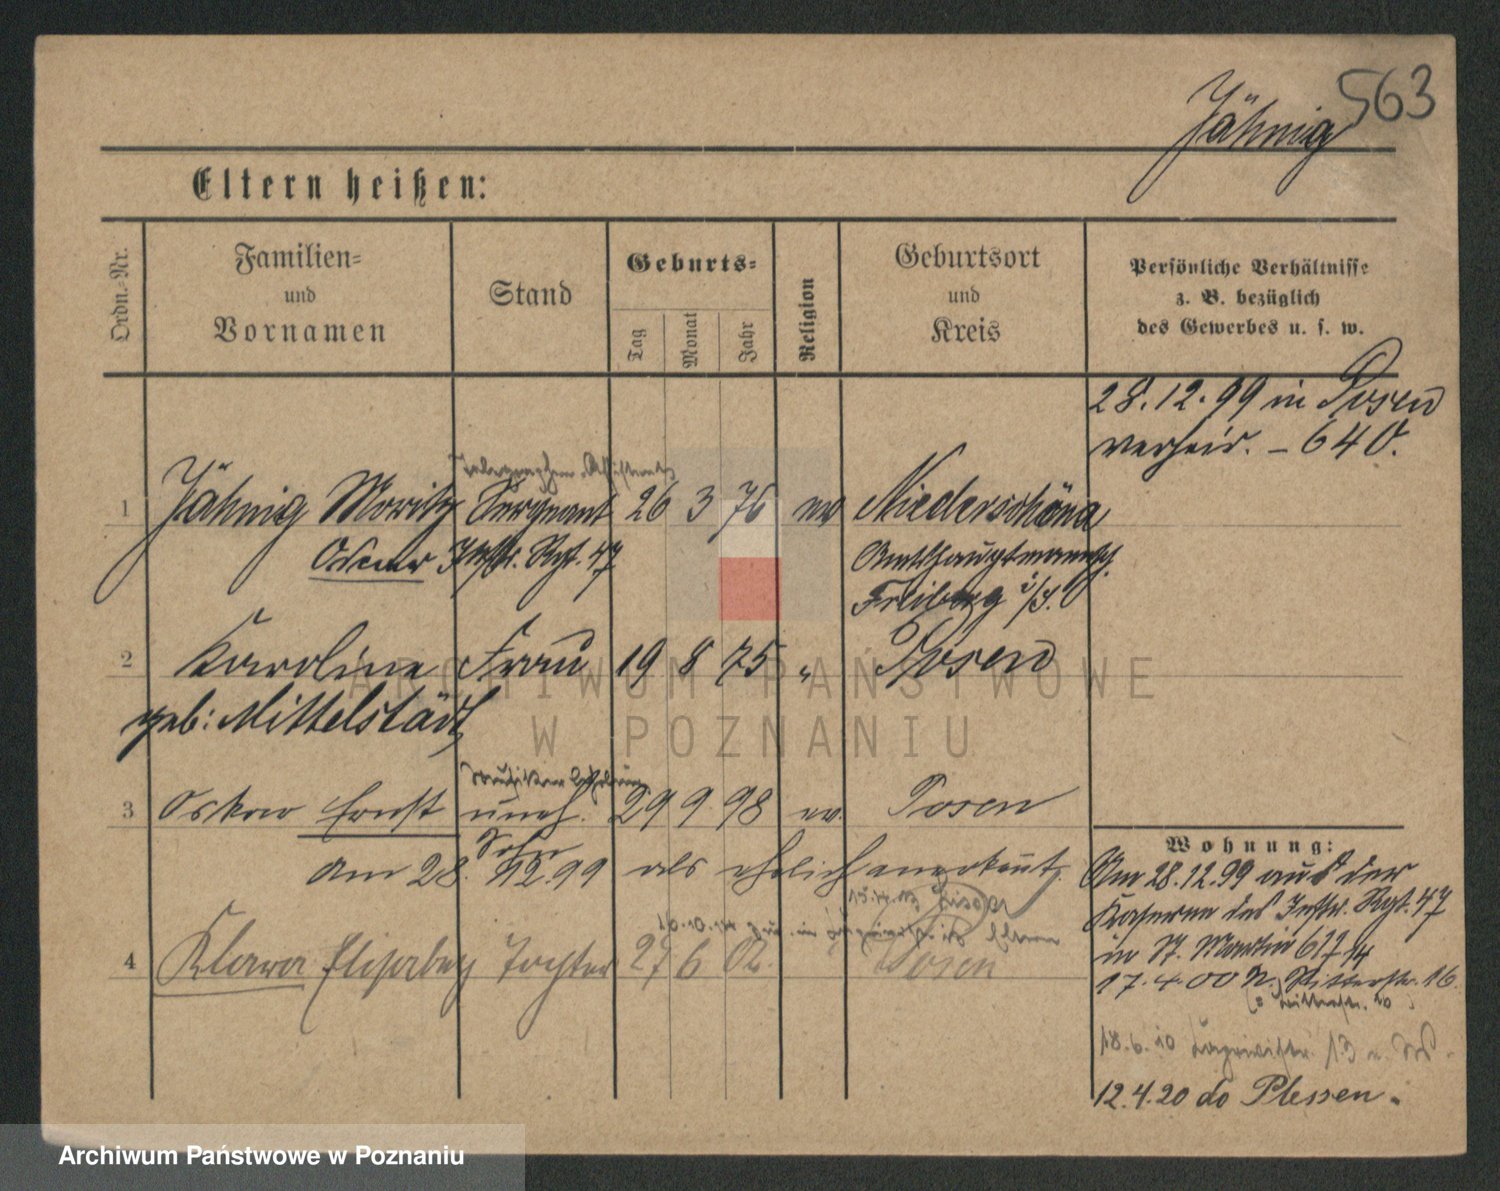 563
Jähnig
Eltern heißen:
Ordn.-Nr.
Familien-
und
Vornamen
Stand
Geburts-
Tag
Monat
Jahr
Religion
Geburtsort
und
Kreis
Persönliche Verhältnisse
z. B. bezüglich
des Gewerbes u. s. w.
28.12.99 in Posen
verheir. – 640.
1 Jähnig Moritz Sergeant 26 3 76 ev Niederschöna
Oskar Inftr. Rgt. 47 Amtshauptmannsch.
Freiberg i/S.
2 Karoline Frau 19 8 75 " Posen
geb: Mittelstädt
3 Oskar Ernst uneh. 29 9 98 ev. Posen
Sohn
am 28.12.99 als ehelich anerkannt.
4 Klara Elisabeth Tochter 27 6 02 Posen
Wohnung:
Am 28.12.99 aus der
Kaserne des Inftr. Rgt. 47
in St. Martin
17.4.00 N. Ritterstr. 16.
18.6.10
12.4.20 do Plessen.
ARCHIWUM PAŃSTWOWE
W POZNANIU
Archiwum Państwowe w Poznaniu